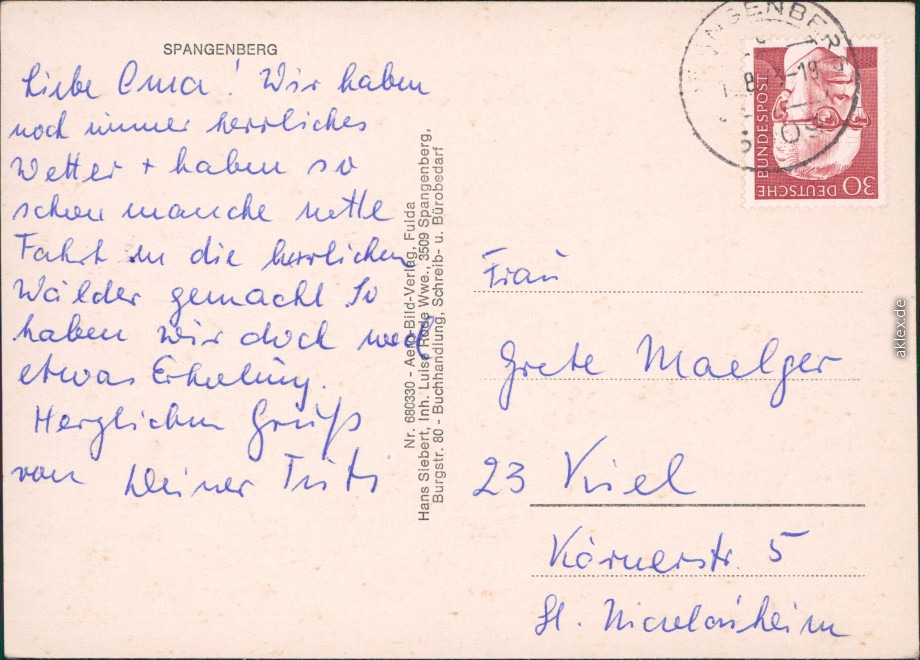 SPANGENBERG
Liebe Oma! Wir haben
noch immer herrliches
Wetter + haben so
schon manche nette
Fahrt in die herrlichen
Wälder gemacht So
haben wir doch noch
etwas Erholung.
Herzlichen Gruß
von Deiner Trüti
Nr. 680330 - Aero-Bild-Verlag, Fulda
Hans Siebert, Inh. Luise Rode Wwe., 3509 Spangenberg,
Burgstr. 80 - Buchhandlung, Schreib- u. Bürobedarf
SPANGENBERG
3509
DEUTSCHE
BUNDESPOST
30
Frau
Grete Maelger
23 Kiel
Körnerstr. 5
St. Nicolaiheim
akpool.de